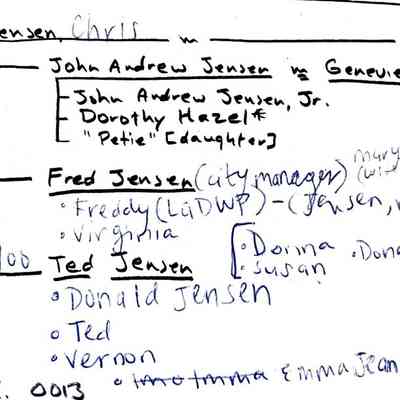 ensen, Chris m
John Andrew Jensen m Genevie
John Andrew Jensen, Jr.
Dorothy Hazel*
"Petie" [daughter]
Fred Jensen (city manager) Mary
Freddy (LADWP) - (Jensen,
Virginia
Donna Dona
Susan
00 Ted Jensen
Donald Jensen
Ted
Vernon
Emma Jean
0013